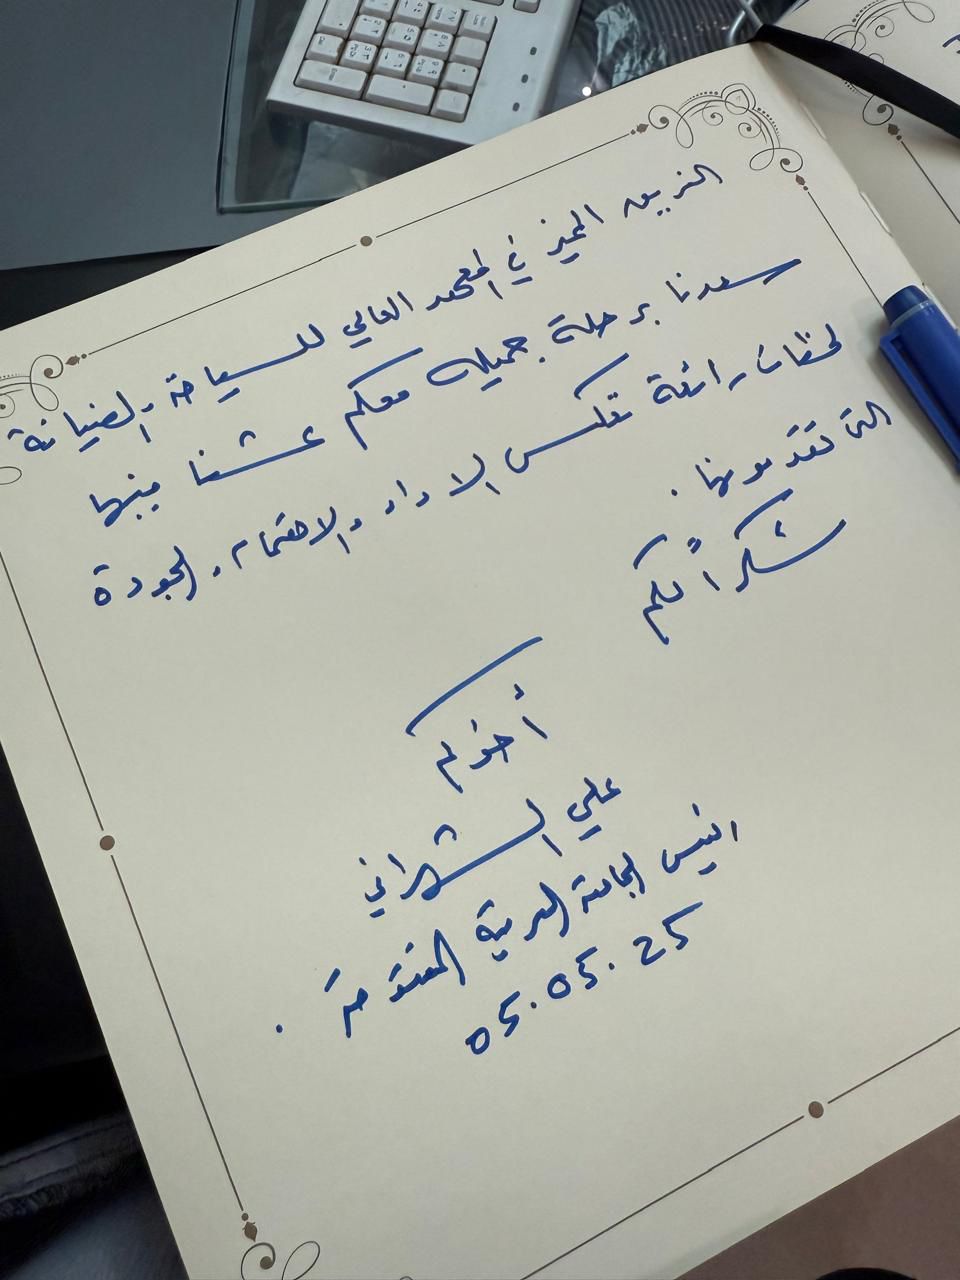 الفريق المميز في المعهد العالي للسياحة والضيافة
سعدنا برحلة جميله معكم عشنا فيها
لحظات رائعة تعكس الاداء والاهتمام والجودة
التي تقدمونها .
شكراً لكم
أخوكم
علي الشهراني
الرئيس الجامعة العربية المفتوحة .
05.05.25